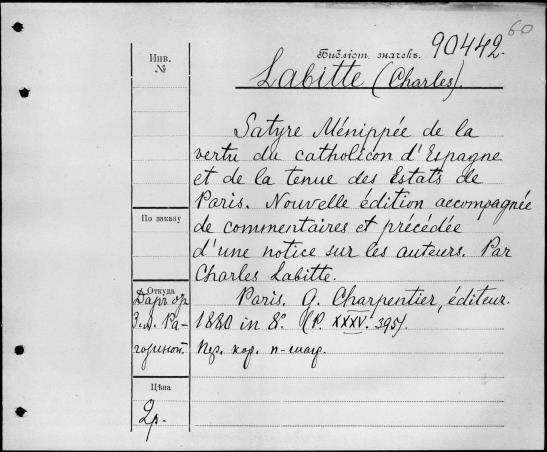 60
Инв.
№
Библіот. значекъ. 90442.
Labitte (Charles).
Satyre Ménippée de la
vertu du catholicon d'Espagne
et de la tenue des Estats de
Paris. Nouvelle édition accompagnée
По заказу
de commentaires et précédée
d'une notice sur les auteurs. Par
Charles Labitte.
Откуда
Paris. G. Charpentier, éditeur.
1880 in 8º. (P. XXXV. 395).
Пер. кор.
Цѣна
2р.